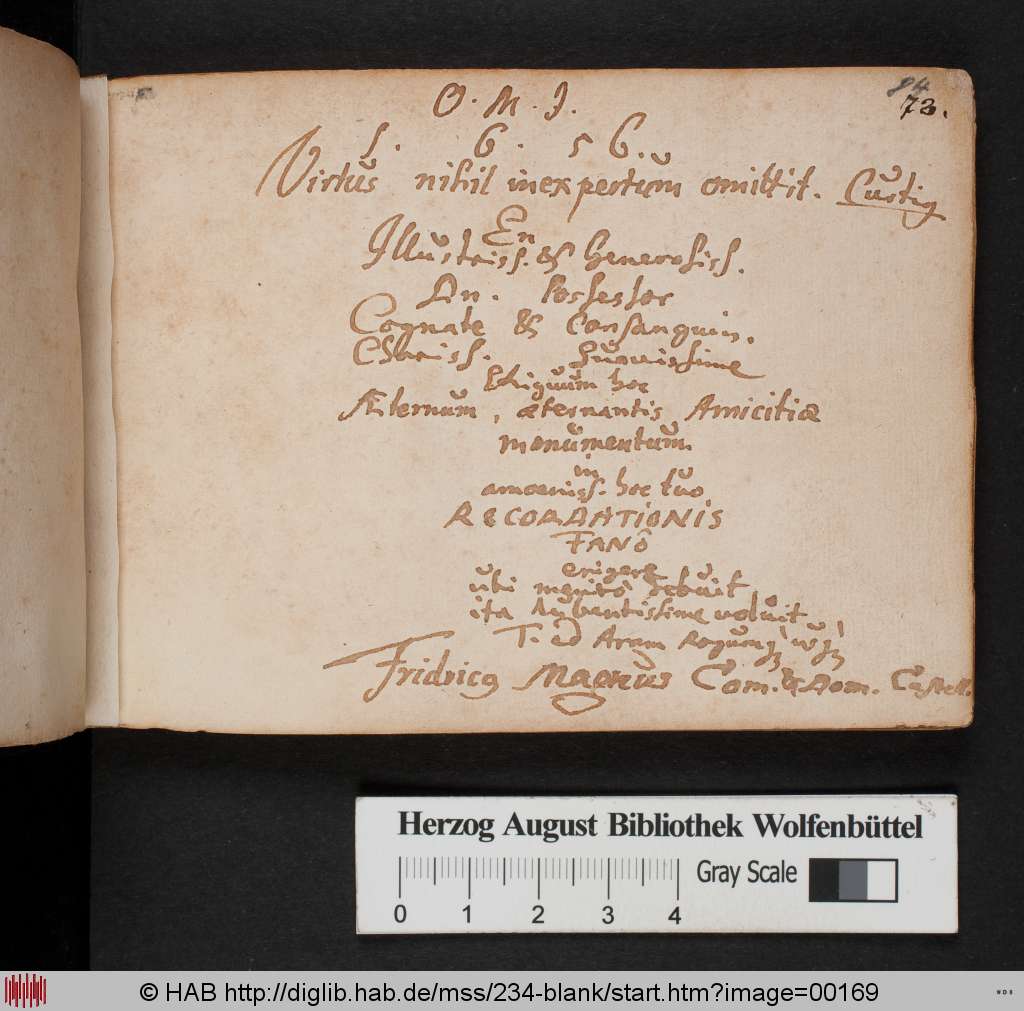 84
73.
O. M. I.
1. 6. 56.
Virtus nihil inexpertum omittit. Curtig
En
Illustriss. & Generosiss.
Dn. Possessor
Cognate & Consanguin.
Chariss. Suavissime
Exiguum hoc
Æternum, æternantis Amicitiæ
monumentum
in
amoeniss. hoc tuo
RECORDATIONIS
FANÔ
erigere
uti meritò debuit
ita lubentissime voluit,
T. ad Aram usq;
Fridricg Magnus Com. & Dom. Castell.
Herzog August Bibliothek Wolfenbüttel
Gray Scale
0 1 2 3 4
© HAB http://diglib.hab.de/mss/234-blank/start.htm?image=00169